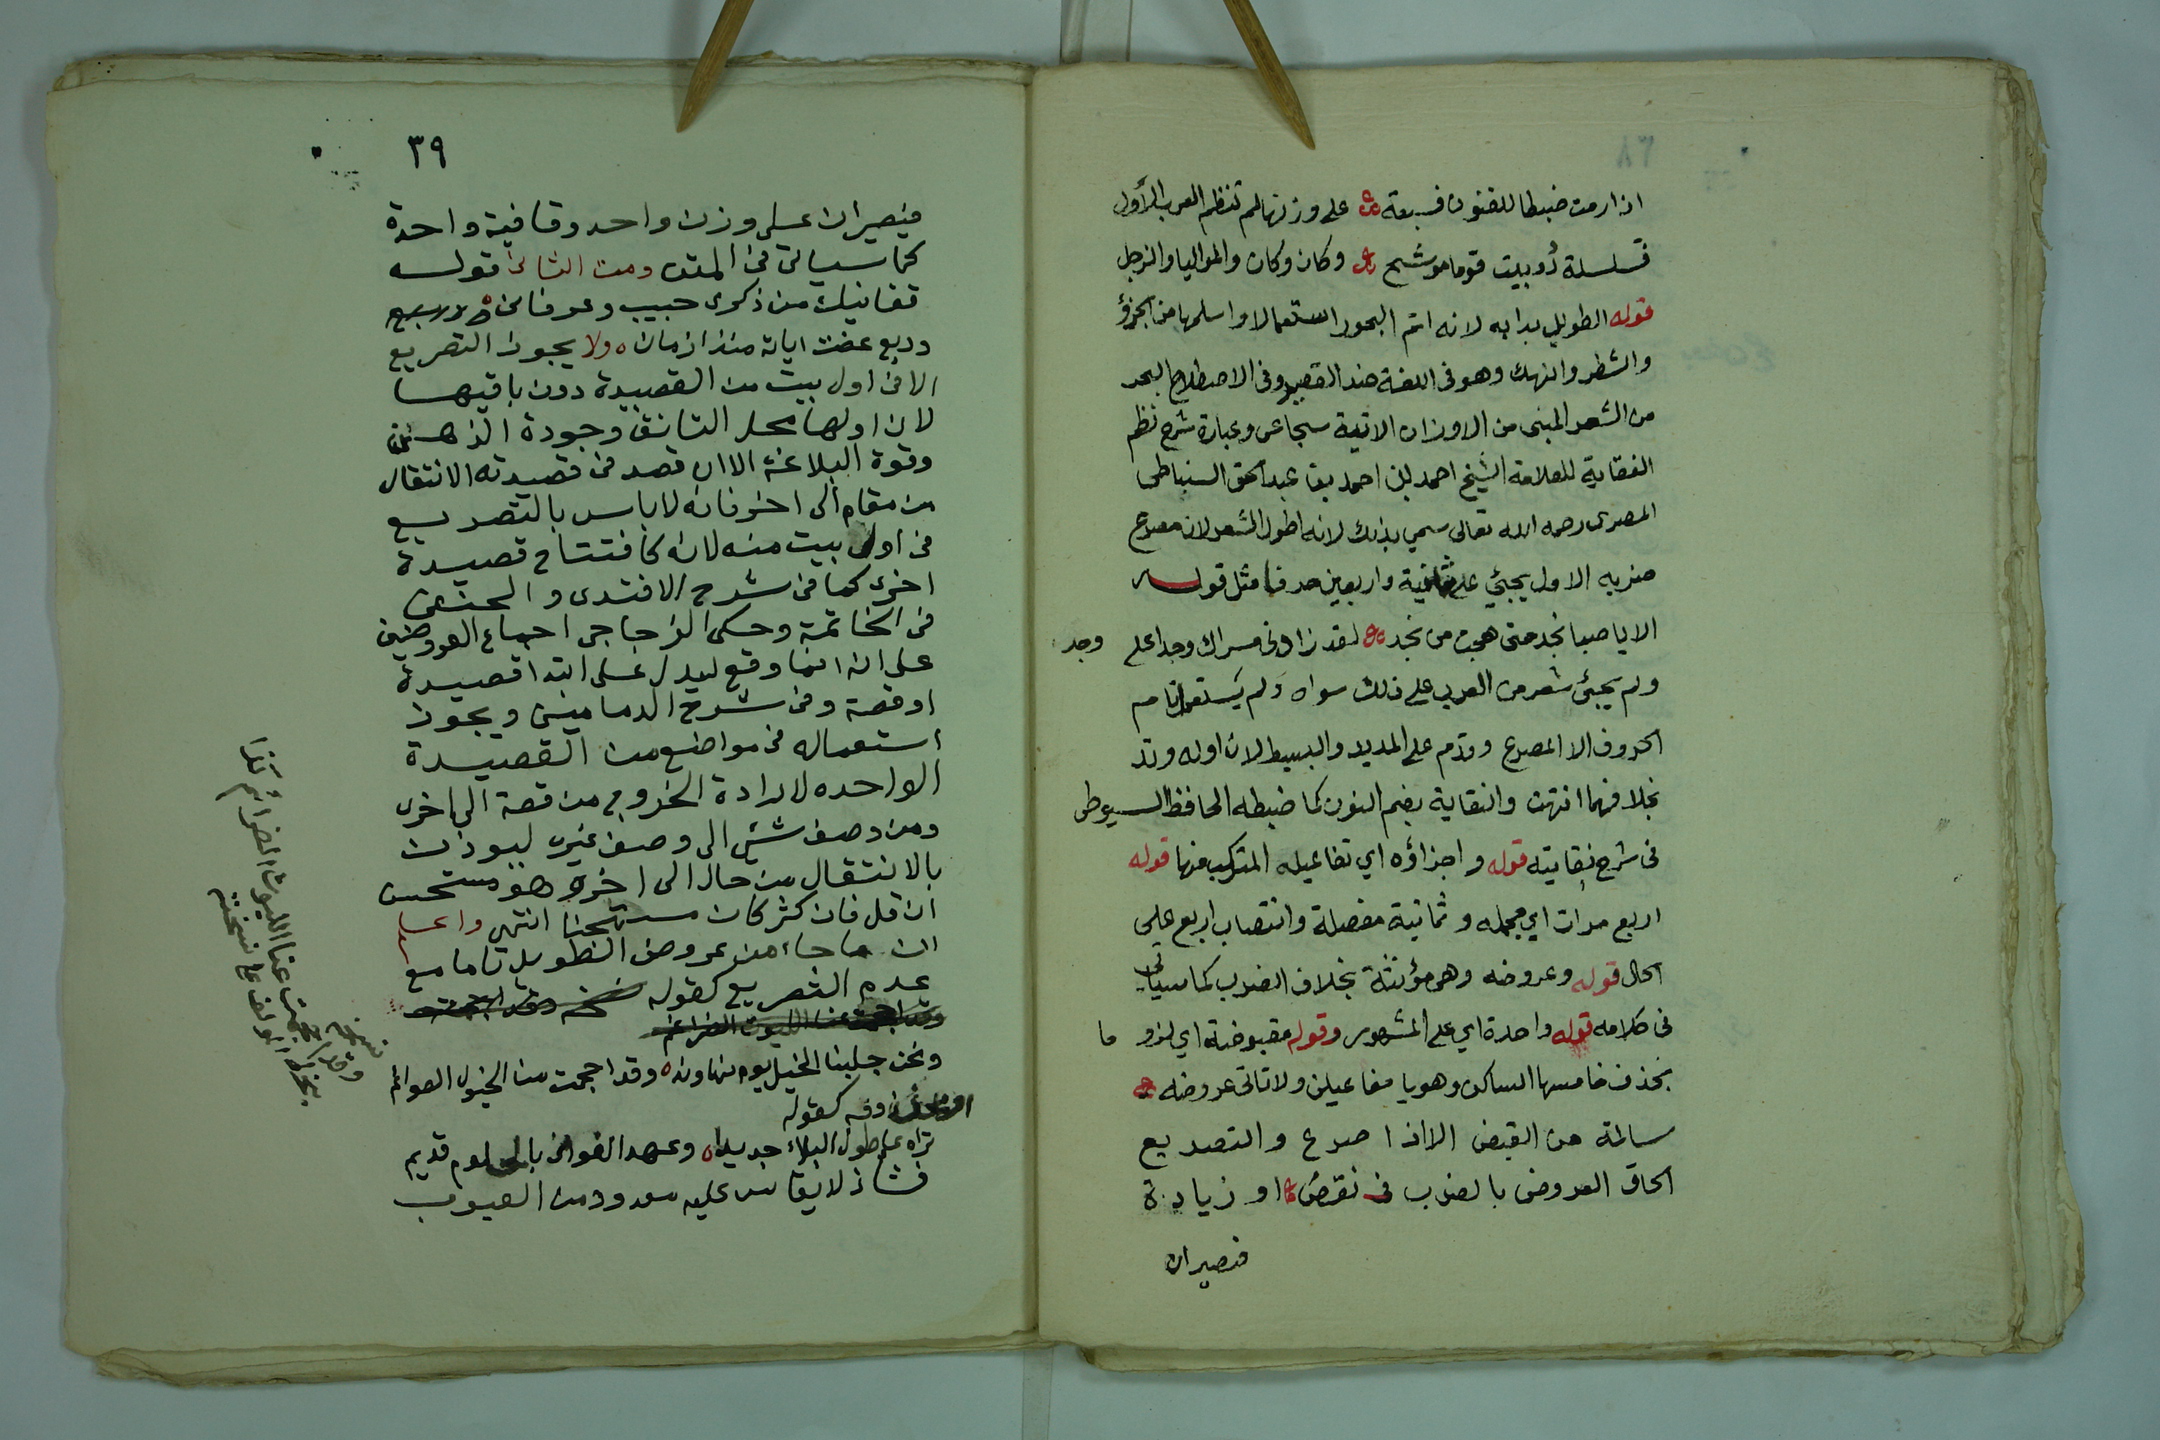 اذا رمت ضبطا للفنون فسبعة على وزنها لم تنظم العرب الأول
فسلسلة دُوبيت قوما موشح وكان وكان والمواليا والزجل
قوله الطويل بدا به لانه اتم البحور استعمالا واسلمها من الجزؤ
والشطر والنهك وهو في اللغة ضد القصير وفي الاصطلاح البحر
من الشعر المبني من الاوزان الاتية سجاعي وعبارة شرح نظم
النقاية للعلامة الشيخ احمد بن احمد بن عبد الحق السنباطي
المصري رحمه الله تعالى سمي بذلك لانه اطول الشعر لان مصرع
ضربه الاول يجيئ على ثمانية واربعين حرفا مثل قوله
الا يا صبا نجد متى هجت من نجد لقد زادني مسراك وجدا على وجد
ولم يجيئ شعر من العرب على ذلك سواه ولم يستعمل تام
الحروف الا المصرع وقدم على المديد والبسيط لان اوله وتد
بخلافهما انتهت والنقاية بضم النون كما ضبطه الحافظ السيوطي
في شرح نقايته قوله واجزاؤه اي تفاعيله المتركب منها قوله
اربع مرات اي مجمله وثمانية مفصلة وانتصاب اربع على
الحال قوله وعروضه وهي مؤنثة بخلاف الضرب كما سياتي
في كلامه قوله واحدة اي على المشهور وقوله مقبوضة اي لزوما
بحذف خامسها الساكن وهو يا مفاعيلن ولا تاتي عروضه
سالمة من القبض الا اذا صرع والتصريع
الحاق العروض بالضرب في نقص او زيادة
فيصيران
٣٩
فيصيران على وزن واحد وقافية واحدة
كما سياتي في المتن ومن الثاني قوله
قفا نبك من ذكرى حبيب وعرفان
وربع عفت اياته منذ ازمان ولا يجوز التصريع
الا في اول بيت من القصيدة دون باقيها
لان اولها محل التانق وجودة الذهن
وقوة البلاغة الا ان قصد في قصيدته الانتقال
من مقام الى اخر فانه لا باس بالتصريع
في اول بيت منه لانه كافتتاح قصيدة
اخرى كما في شرح الافندي والحنفي
في الخاتمة وحكى الزجاجي اجماع العروضيين
على انه انما وقع ليدل على ابتدا قصيدة
او قصة وفي شرح الدماميني ويجوز
استعماله في مواضع من القصيدة
الواحده لارادة الخروج من قصة الى اخرى
ومن وصف شئ الى وصف غيره ليوذن
بالانتقال من حال الى اخرى وهو مستحسن
ان قل فان كثر كان مستهجنا انتهى واعلم
ان ما جاء من عروض الطويل تاما مع
عدم التصريع كقوله
ونحن جلبنا الخيل يوم نهاوند وقد احجمت منا الخيول الصوائم
كقوله
تراه على طول البلاء جديدا وعهد المغاني بالحلوم قديم
فشاذ لا يقاس عليه معدود من العيوب
نسخة
وقد احجمت عنا الليوث الضراغم كذا
بخط المؤلف على نسخته